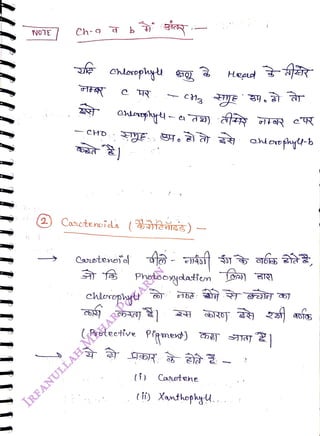 NOTE
Ch-a व b में अंतर :—
यदि chlorophyll अणु के Head के तीसरे
नम्बर C पर — CH3 समूह उप. हो तो
इसे chlorophyll-a तथा तीसरे नम्बर C पर
— CHO समूह उप. हो तो इसे chlorophyll-b
कहते हैं|
② Carotenoids (कैरोटिनॉइड) —
→ Carotenoid पीले - नारंगी रंग के वर्णक होते हैं,
जो कि Photooxydation क्रिया द्वारा
chlorophyll को नष्ट होने से बचाने का
कार्य करता है| इस कारण इसे रक्षी वर्णक
(Protective Pigment) कहा जाता है|
→ ये दो प्रकार के होते हैं —
(i) Carotene
(ii) Xanthophyll.